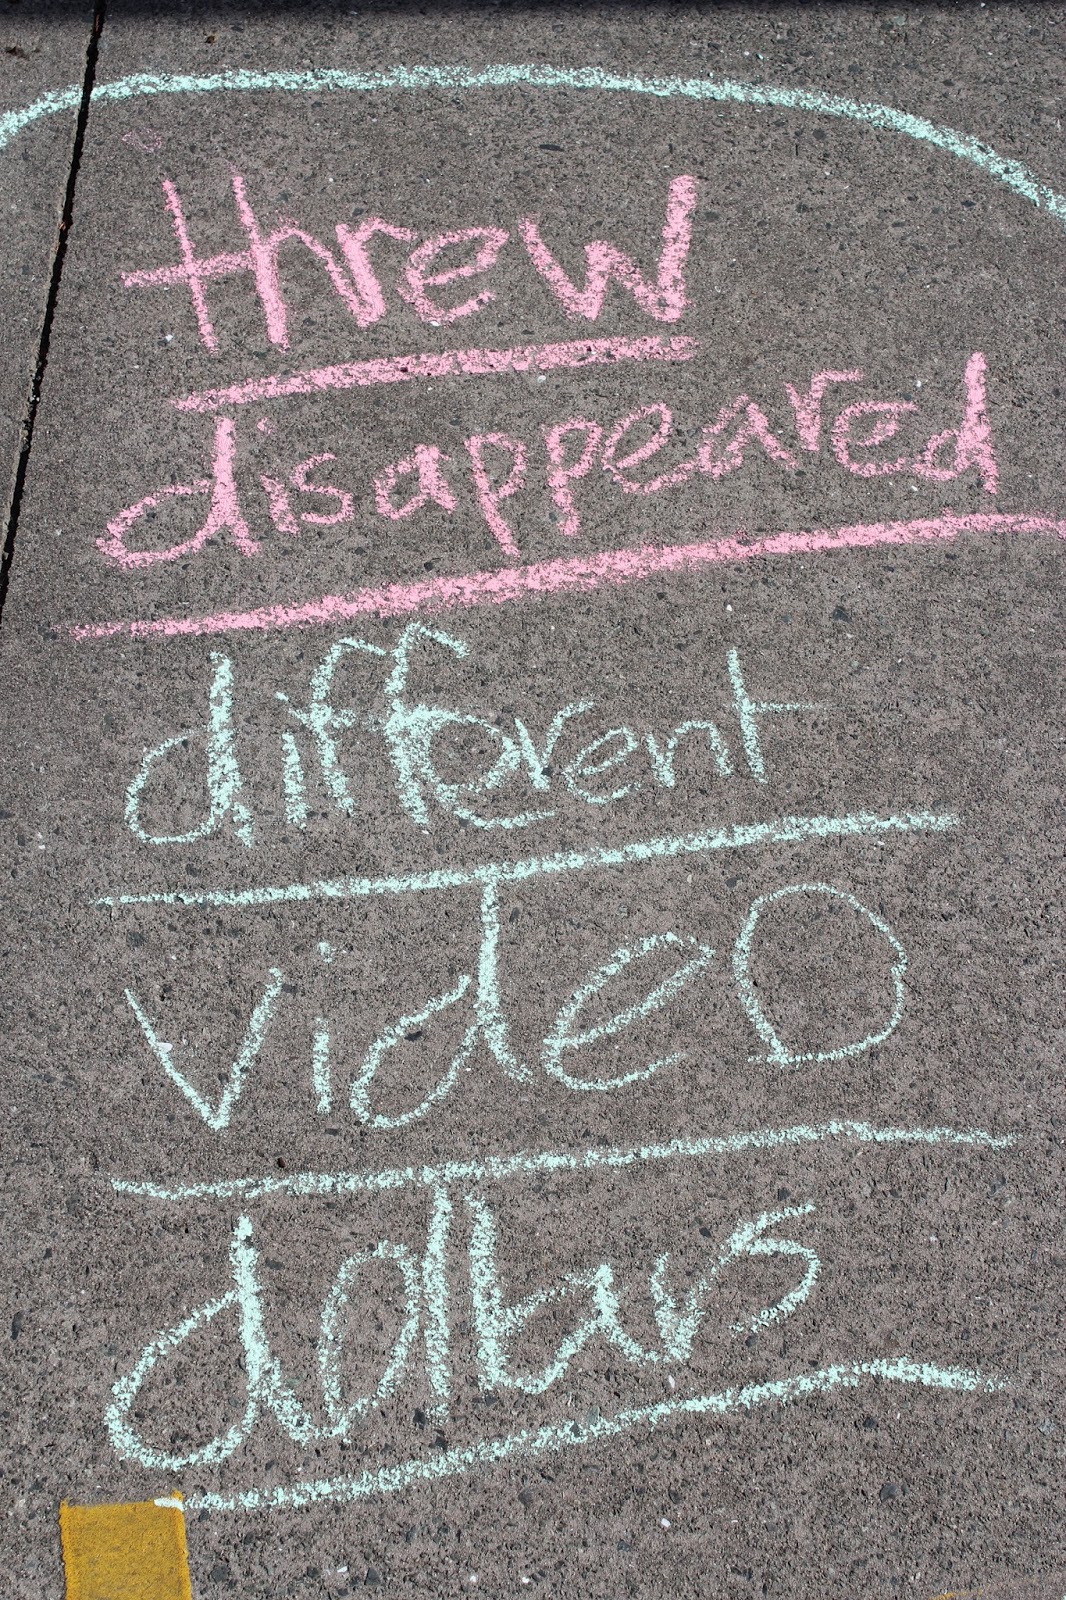 threw
disappeared
different
video
dollars